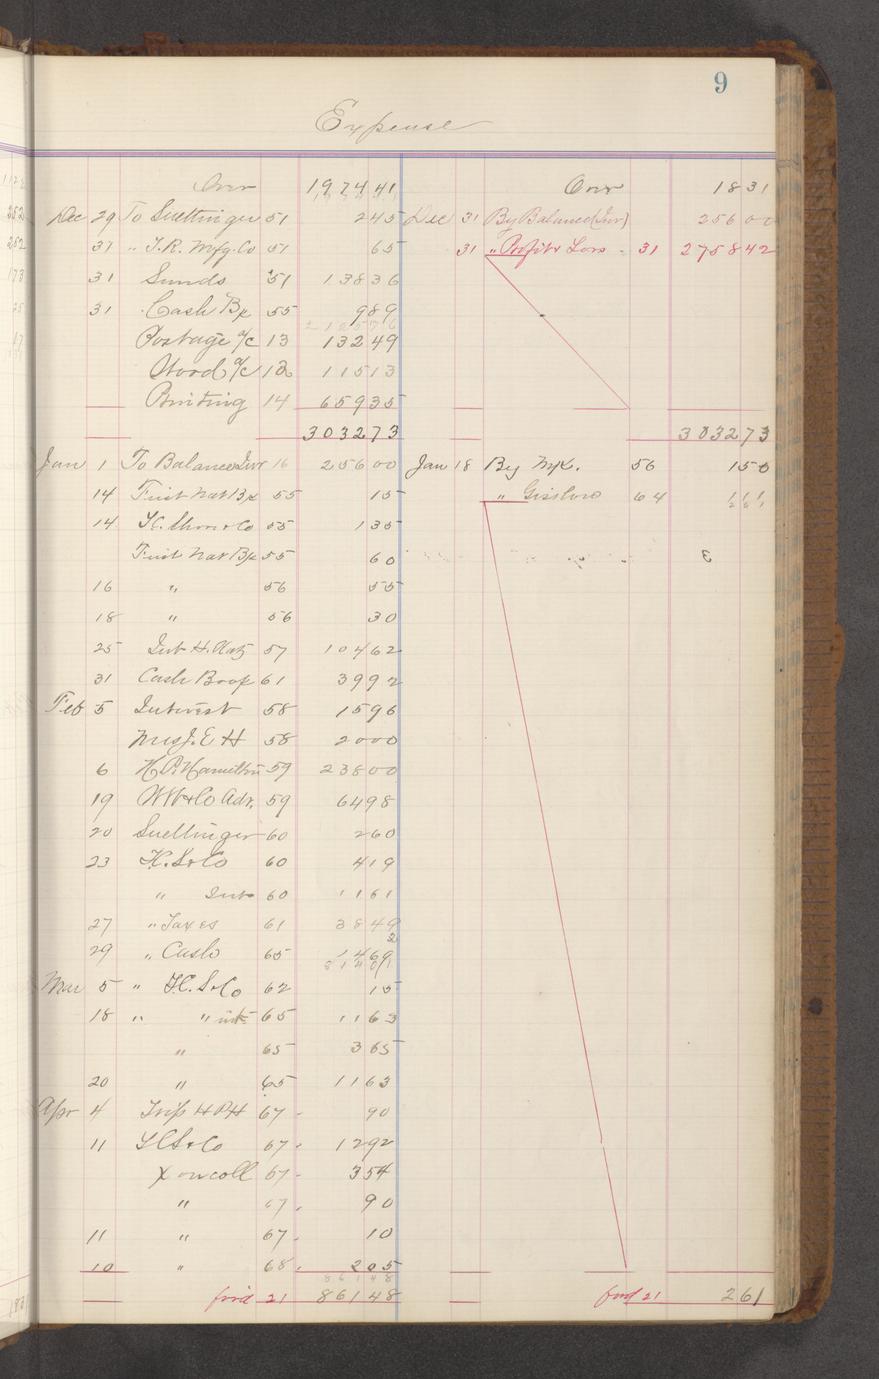 9
Expense
Over 1974 41 Over 18 31
Dec 29 To Suettinger 51 2 45 Dec 31 By Balance (Inv) 256 00
31 " T.R. Mfg. Co 51 65 31 " Profit & Loss 31 2758 42
31 Sunds 51 138 36
31 Cash Bk 55 9 89
Postage a/c 13 132 49
Wood a/c 12 115 13
Printing 14 659 35
3032 73 3032 73
Jan 1 To Balance Inv 16 256 00 Jan 18 By 56 1 50
14 First Nat Bk 55 15 " 64 1 11
14 & Co 55 1 35
First Nat Bk 55 60
16 " 56 55
18 " 56 30
25 Int H. 57 104 62
31 Cash Book 61 39 92
Feb 5 Interest 58 15 96
Mrs J. E H 58 20 00
6 H.P. Hamilton 59 238 00
19 & Co Adv. 59 64 98
20 Suettinger 60 2 60
23 & Co 60 4 19
" Int 60 11 61
27 " Taxes 61 38 49
29 " Cash 65 14 69
Mar 5 " S & Co 62 15
18 " " int 65 11 63
" 65 3 65
20 " 65 11 63
Apr 4 Trip H P H 67 90
11 S & Co 67 12 92
X on coll 67 3 54
" 67 90
11 " 67 10
10 " 68 2 05
861 48
ford 21 861 48 ford 21 2 61